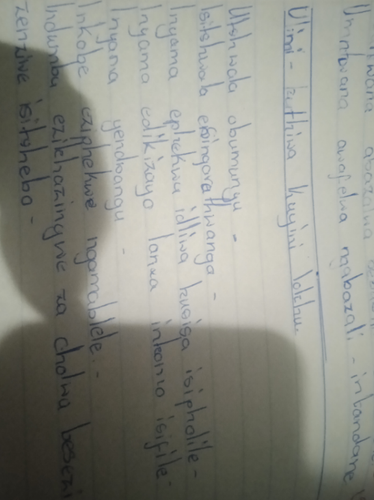 Umntwana owafelwa ngabazali - intandane
Ulimi - kuthiwa kuyini lokhu
Utshwala obumunyu -
Isitshwala esingavuthwanga -
Inyama ephekwe idliwa kusisa isipholile -
Inyama edikizayo lanxa inkomo isifile -
Inyama
Inkobe eziphekwe ngamabele -
Indumba ezikhazingwe za cholwa besezi
zenziwe isitshebo -